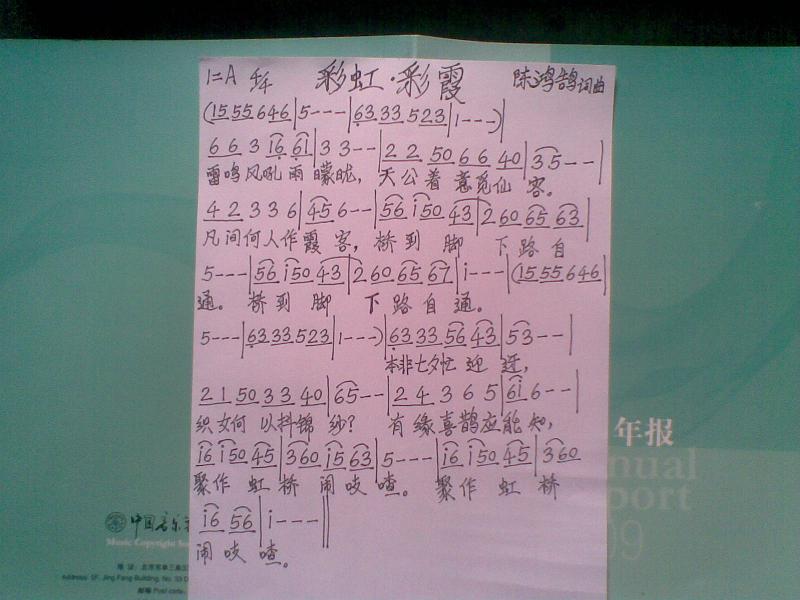 1=A 4/4 彩虹·彩霞 陈鸿鹄词曲
(15 55 646|5---|63 33 523|1---)|
6 6 3 16 61|3 3--|2 2 50 6 6 40|35--|
雷鸣风吼雨朦胧，天公着意觅仙客。
4 2 3 3 6|45 6--|56 i50 43|2 60 65 63|
凡间何人作霞客，桥到脚下路自
5---|56 i50 43|2 60 65 67|i---|(15 55 646|
通。桥到脚下路自通。
5---|63 33 523|1---)|63 33 56 43|53--|
本非七夕忙迎迓，
2 1 50 3 3 40|65--|2 4 3 6 5|61 6--|
织女何以抖锦纱？有缘喜鹊应能知，
i6 i50 45|360 i5 63|5---|i6 i50 45|360
聚作虹桥闹吱喳。聚作虹桥
i6 56|i---||
闹吱喳。
年报
nnual
port
09
中国音乐
Music Copyright So
Address: 5F, Jing Fang Building, No. 33 D
邮编 Post code